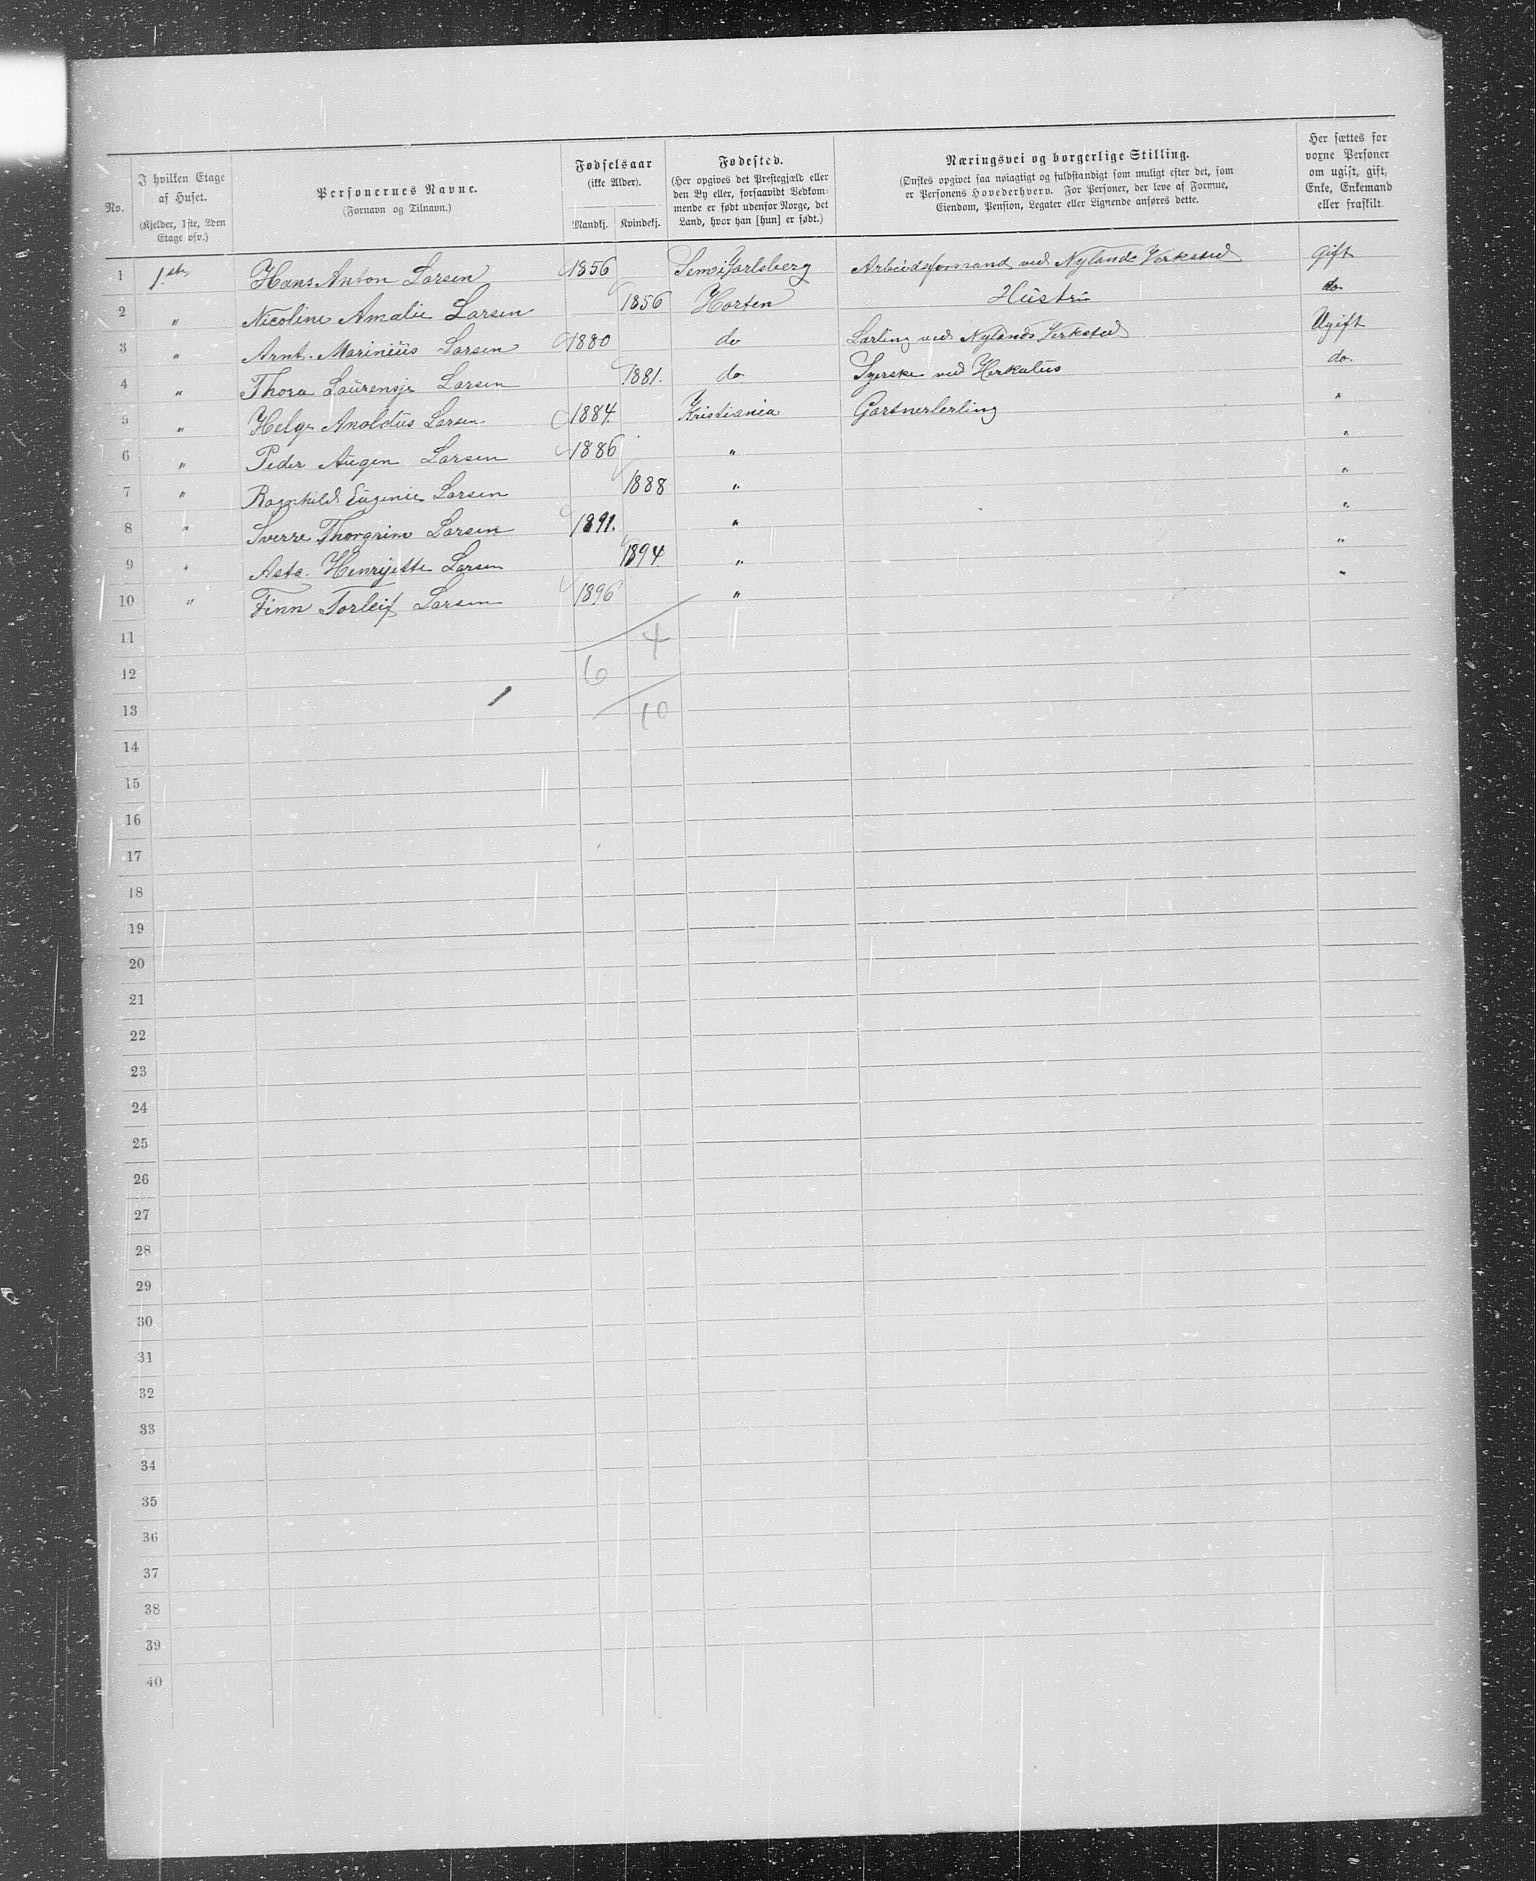 No. | I hvilken Etage af Huset. (Kjelder, 1ste, 2den Etage osv.) | Personernes Navne. (Fornavn og Tilnavn.) | Fødselsaar (ikke Alder). Mandkj. Kvindekj. | Fødested. (Her opgives det Prestegjæld eller den By eller, forsaavidt Vedkommende er født udenfor Norge, det Land, hvor han [hun] er født.) | Næringsvei og borgerlige Stilling. (Ønskes opgivet saa nøiagtigt og fuldstændigt som muligt efter det, som er Personens Hovederhverv. For Personer, der leve af Formue, Eiendom, Pension, Legater eller Lignende anføres dette. | Her sættes for voxne Personer om ugift, gift, Enke, Enkemand eller fraskilt.
1 1ste Hans Anton Larsen 1856 Sem i Jarlsberg Arbeidsformand ved Nylands Verksted Gift
2 " Nicoline Amalie Larsen 1856 Horten Hustru do
3 " Arnt. Marinius Larsen 1880 do Lærling ved Nylands Verksted Ugift
4 " Thora Laurensje Larsen 1881. do Syerske ved Herkules do.
5 " Helge Anoldus Larsen 1884. Kristiania Gartnerlerling "
6 " Peder Augen Larsen 1886 " "
7 " Ragnhild Eugenie Larsen 1888 " "
8 " Sverre Thorgrim Larsen 1891. " "
9 " Asta Henrijette Larsen 1894. " "
10 " Finn Torleif Larsen 1896 " "
11 4
12 6
13 10
14
15
16
17
18
19
20
21
22
23
24
25
26
27
28
29
30
31
32
33
34
35
36
37
38
39
40